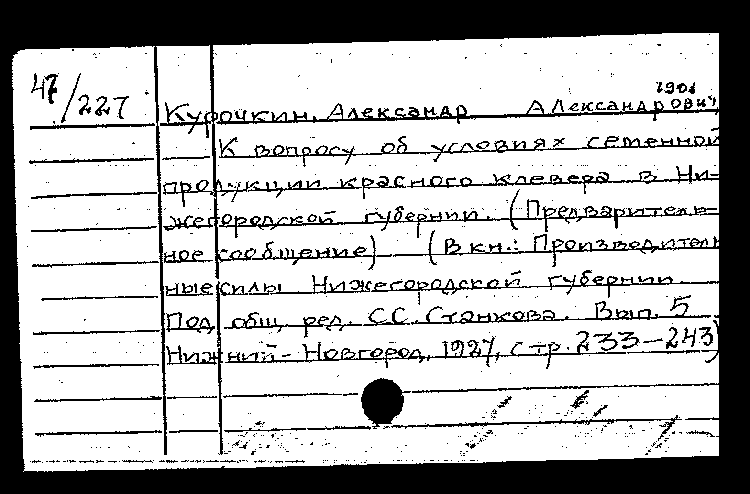 47/227
1901
Курочкин, Александр Александрович,
К вопросу об условиях семенной
продукции красного клевера в Ни-
жегородской губернии. (Предваритель-
ное сообщение) (В кн.: Производитель
ные силы Нижегородской губернии
Под общ. ред. С.С. Станкова. Вып. 5
Нижний-Новгород, 1927, стр. 233-243)